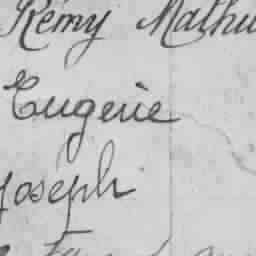 Rémy Mathu
Eugènie
Joseph